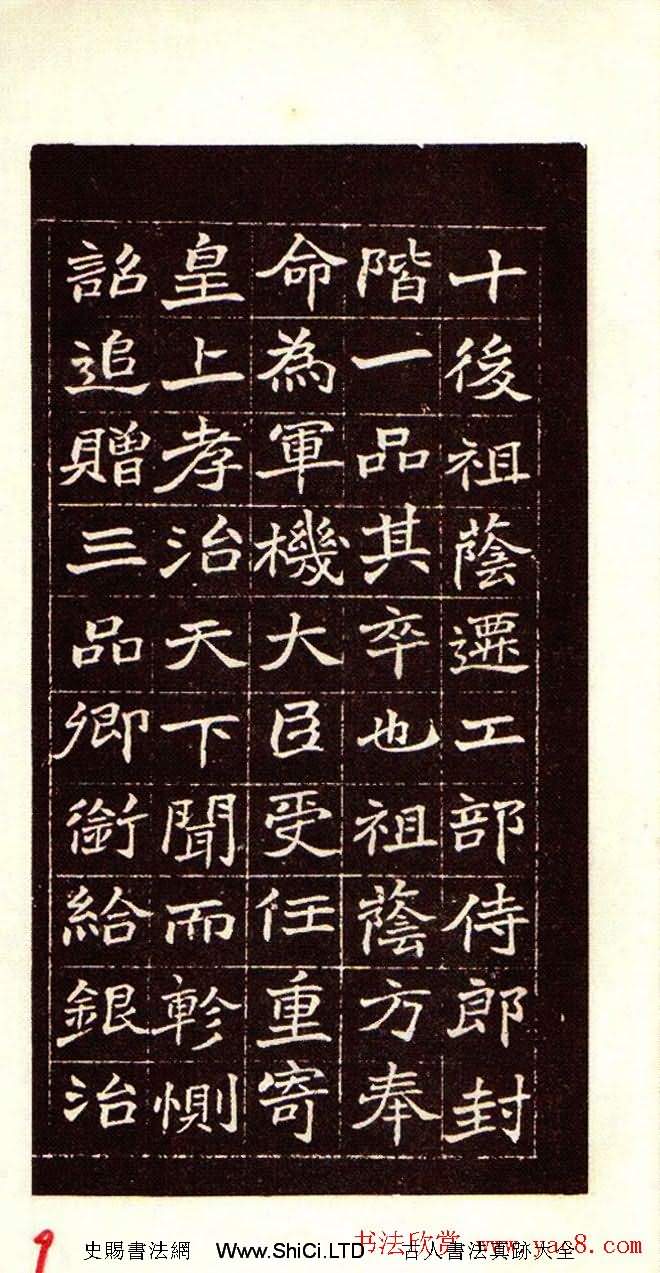 十後祖蔭遷工部侍郎封
階一品其卒也祖蔭方奉
命為軍機大臣受任重寄
皇上孝治天下聞而軫惻
詔追贈三品卿銜給銀治
9
史賜書法網 Www.ShiCi.LTD 古人書法真跡大全
书法欣赏 www.yac8.com